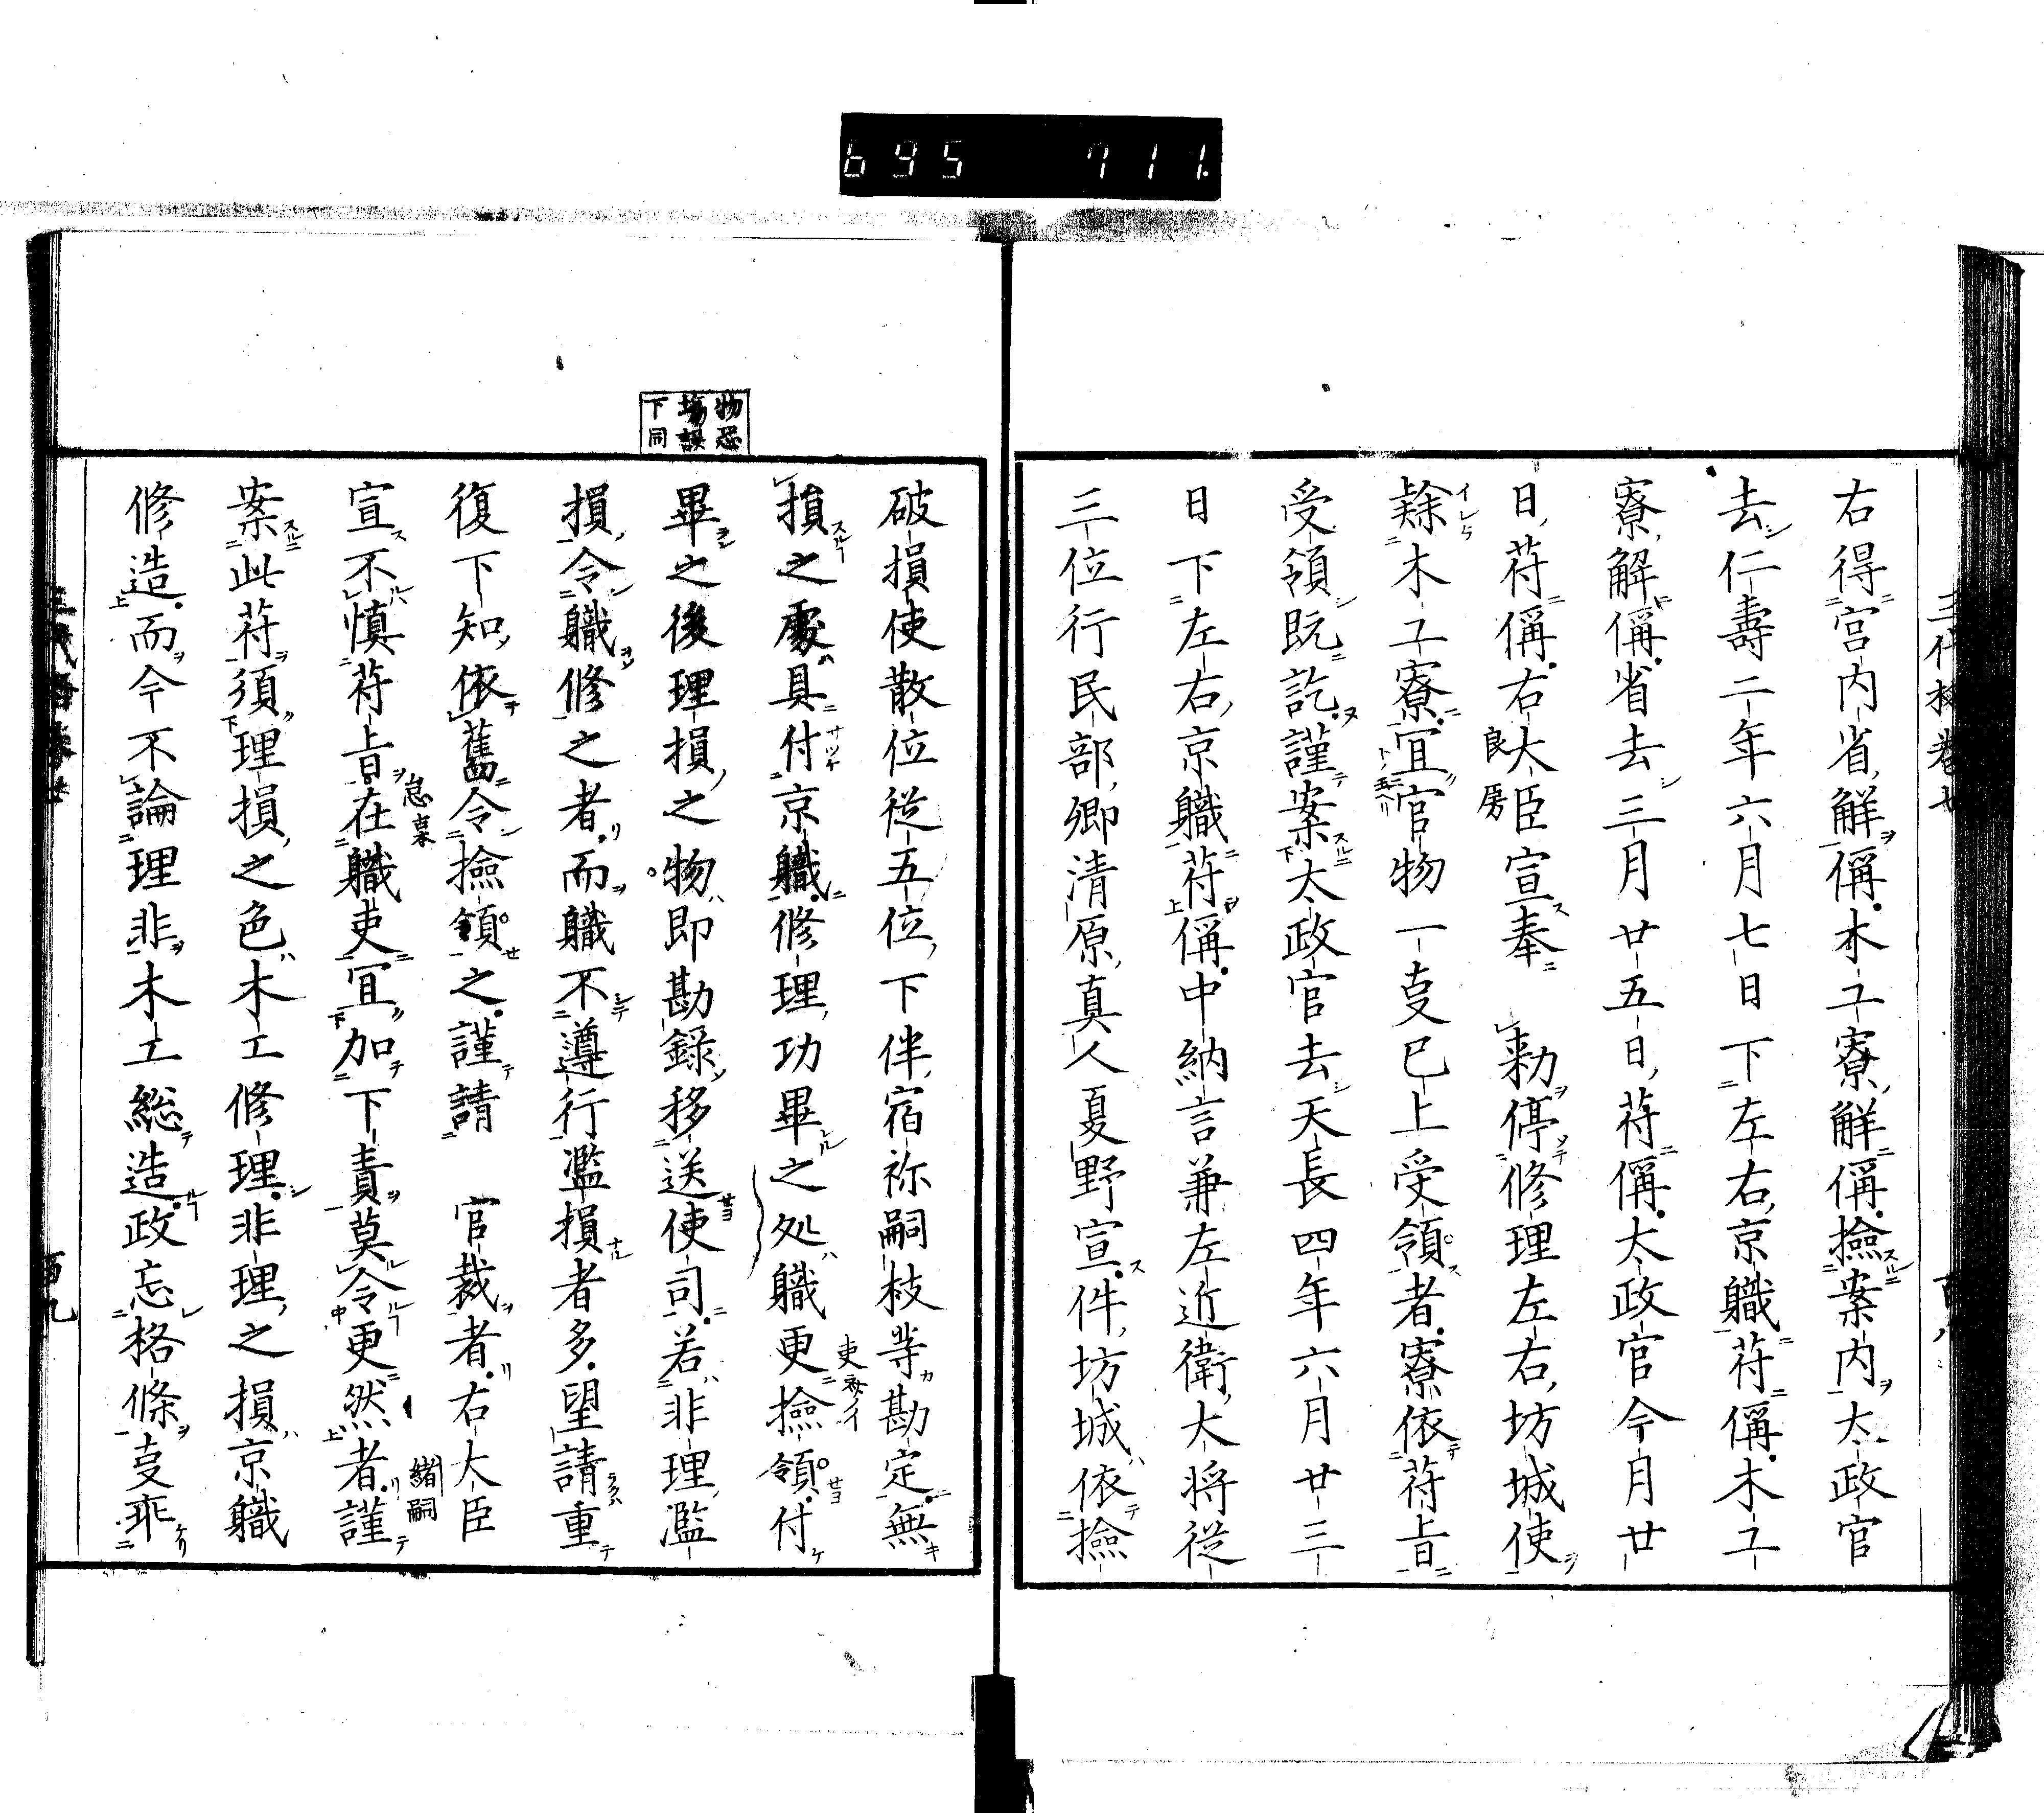 695 711.
右得宮内省解偁木工寮解偁撿案内太政官
去仁壽二年六月七日下左右京職苻偁木工
寮解偁省去三月廿五日苻偁太政官今月廿
日苻偁右大臣宣奉 勅停修理左右坊城使
良房
隸木工寮冝官物一叓已上受領者寮依苻㫖
受領既訖謹案太政官去天長四年六月廿三
日下左右京職苻偁中納言兼左近衛大将従
三位行民部卿清原真人夏野宣件坊城依撿
物恐
塲誤
下同
破損使散位従五位下伴宿祢嗣枝等勘定無
損之處具付京職修理功畢之処職更撿領付
畢之後理損之物即勘録移送使司若非理濫
損令職修之者而職不遵行濫損者多望請重
復下知依舊令撿領之謹請 官裁者右大臣
緒嗣
宣不慎苻㫖在職吏冝加下責莫令更然者謹
案此苻須理損之色木工修理非理之損京職
修造而今不論理非木工総造政忘格條叓乖